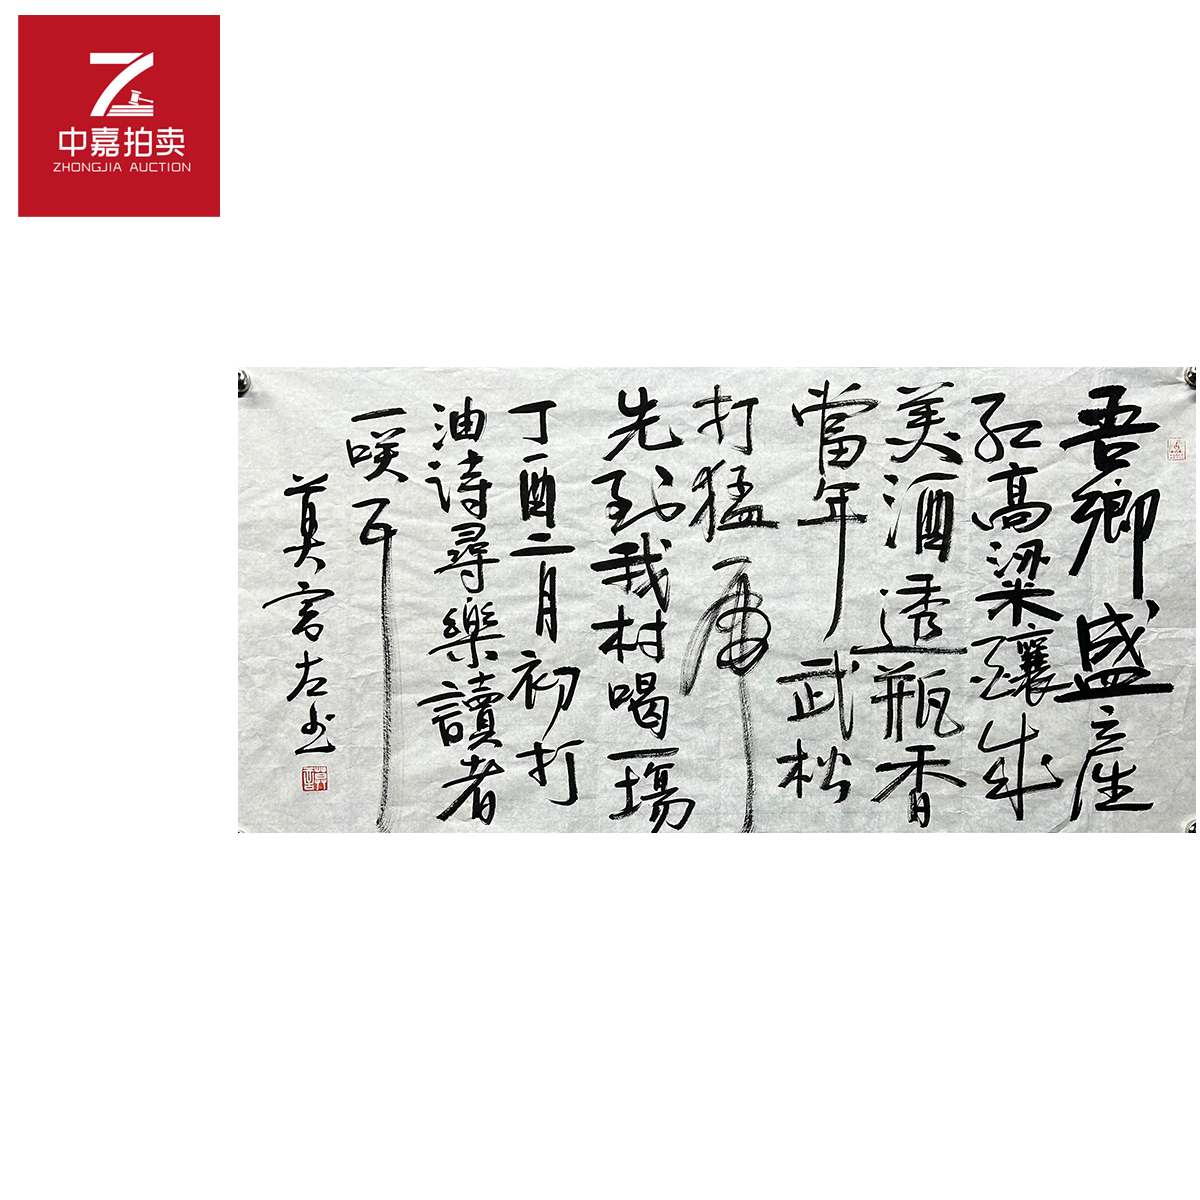 中嘉拍卖
ZHONGJIA AUCTION
吾鄉盛产
红高粱釀成
美酒透瓶香
當年武松
打猛虎
先到我村喝一場
丁酉二月初打
油诗尋樂讀者
一咲耳
莫言左书